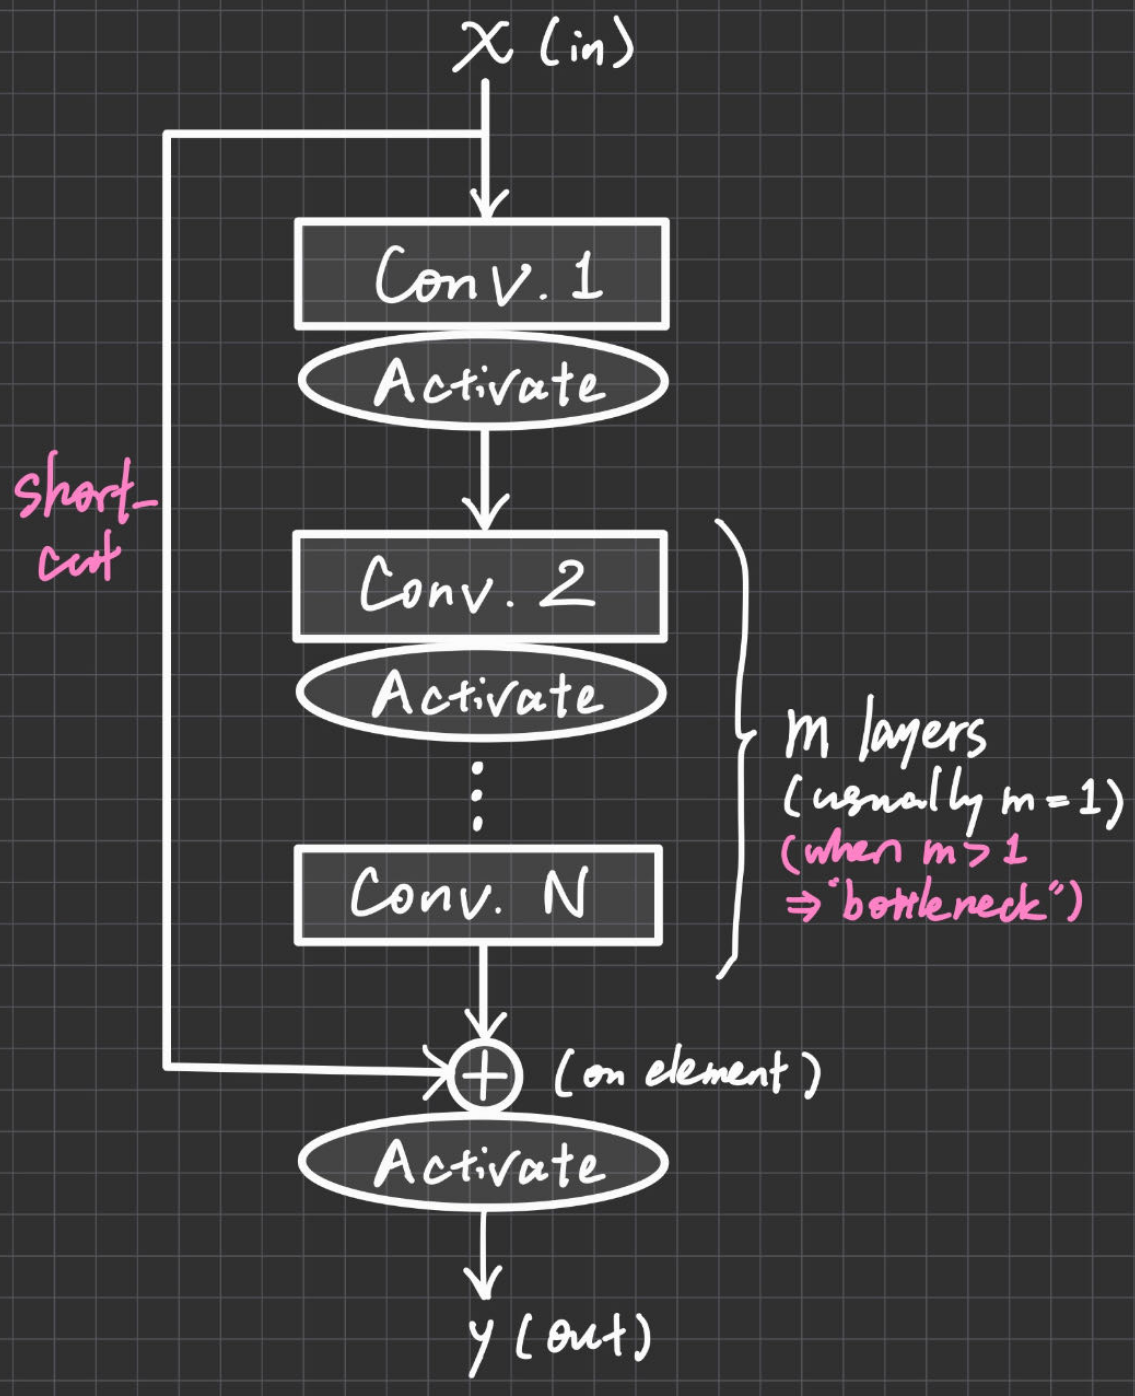 x (in)
Conv. 1
Activate
short-
cut
Conv. 2
Activate
m layers
(usually m = 1)
(when m > 1
⇒ "bottleneck")
Conv. N
+ (on element)
Activate
y (out)